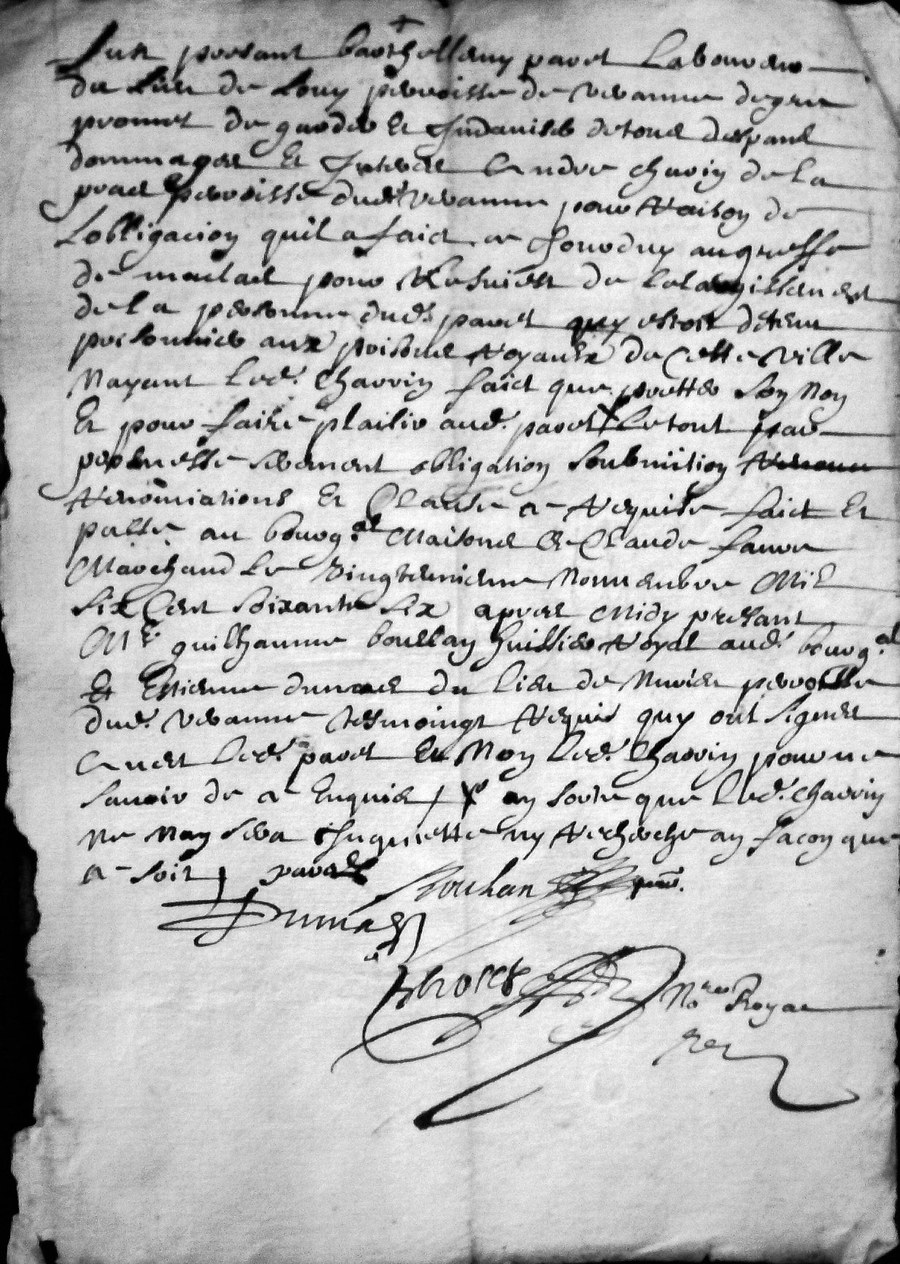 Fut presant barthellemy paret Laboureur
du Lieu de Louy parroisse de veranne degre
promet de garder Et Indamiser de tous despans
dommages Et Interes Andre charvin de la
parroisse dud. veranne pour Raison de
Lobligacion quil a faict ce Jourduy au greffe
de pour de Lelargissement
de la personne dud. paret quy estoit detenu
prisonnier aux prisons Royaux de Cette Ville
Nayant led. charvin faict que pretter son Non
Et pour faire plaisir aud. paret Le tout par
promesse serment obligation soubmition
Renonciations Et Clause a ce Requise faict Et
passé au bourg.al Maison de Claude faure
Marchand Le Vingtemieme Nouuenbre Mil
Six Cent Soixante Six apres Midy presant
Me guilhaume boullan huissier Royal aud. bourg.al
Et Estienne dumas du lieu de parroisse
dud. veranne tesmoingt Requis quy ont Signes
Auec led. paret Et Non led. charvin pour ne
sauoir de ce Enquis / an sorte que led. charvin
Ne Nay sera Inquiette ny Recherche an facon que
ce soit / paret
Dumas
Nore Royal